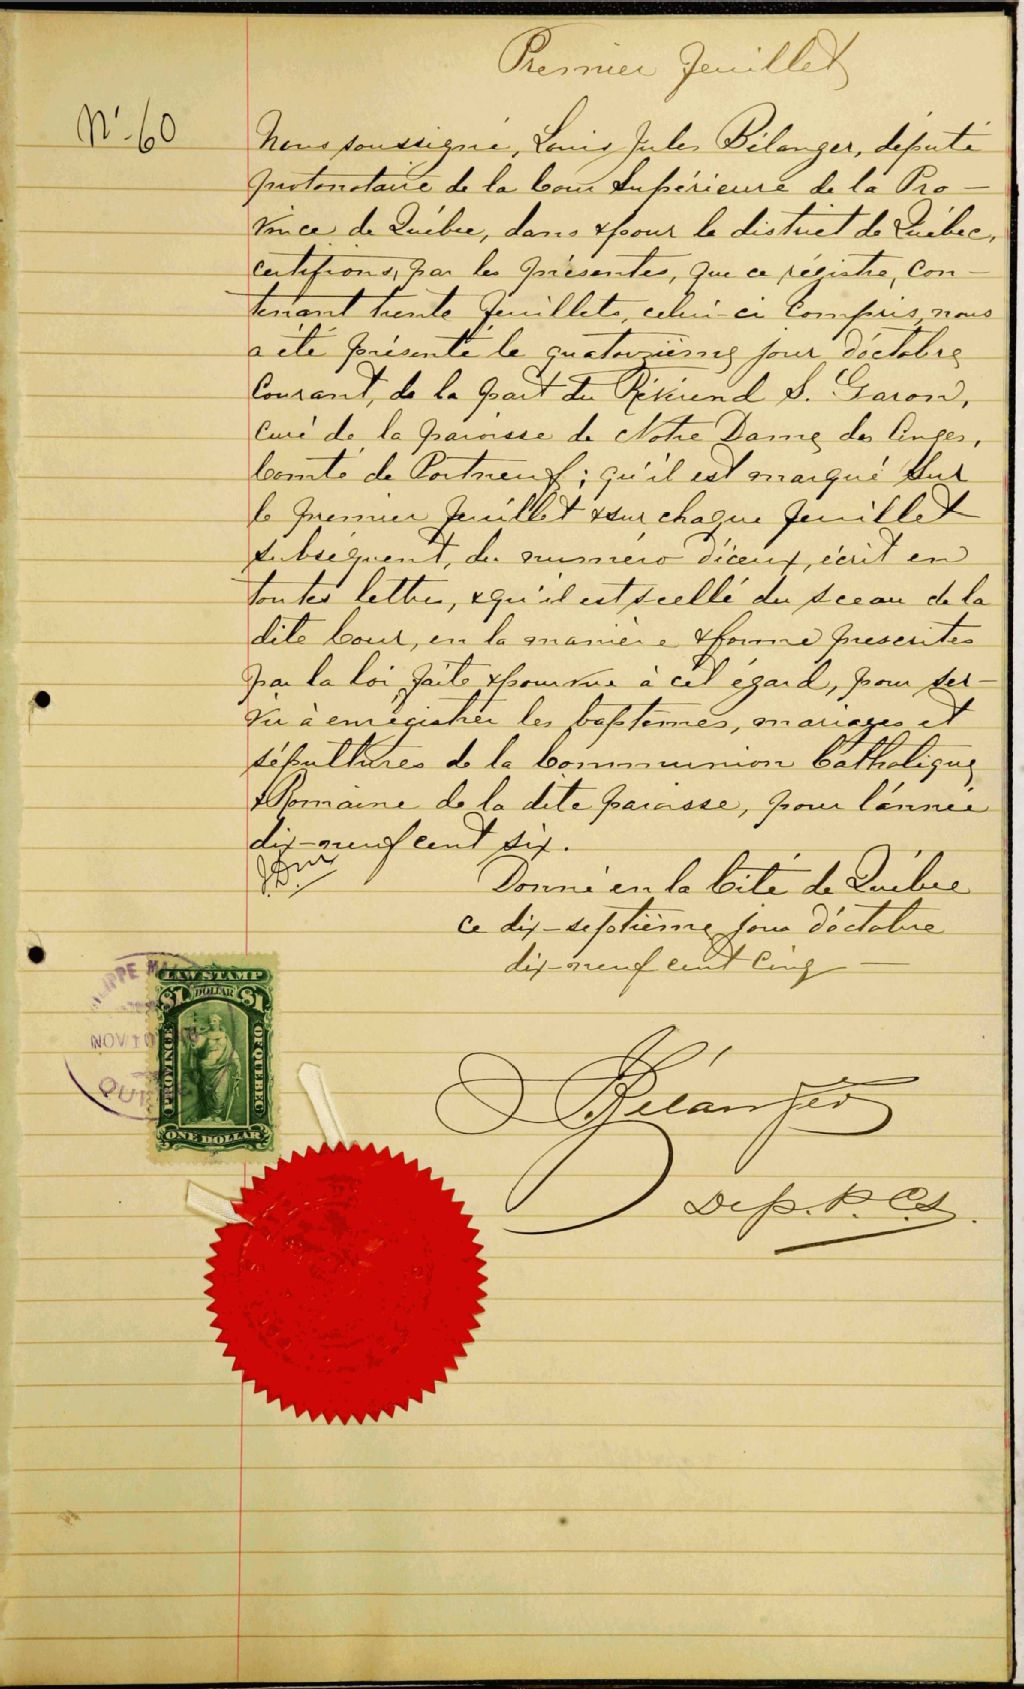 Premier feuillet
No 60
Nous soussigné, Louis Jules Bélanger, député
protonotaire de la Cour Supérieure de la Pro-
vince de Québec, dans & pour le district de Québec,
certifions, par les présentes, que ce régistre, con-
tenant trente feuillets, celui-ci compris, nous
a été présenté le quatorzième jour d'octobre
courant, de la part du Révérend S. Garon,
curé de la paroisse de Notre Dame des Anges,
Comté de Portneuf; qu'il est marqué sur
le premier feuillet & sur chaque feuillet
subséquent, du numéro d'iceux, écrit en
toutes lettres, & qu'il est scellé du sceau de la
dite Cour, en la manière & forme prescrites
par la loi faite & pourvue à cet égard, pour ser-
vir à enrégistrer les baptêmes, mariages et
sépultures de la Communion Catholique
& Romaine de la dite paroisse, pour l'année
dix-neuf cent six.
Donné en la Cité de Québec
ce dix-septième jour d'octobre
dix-neuf cent cinq —
LAW STAMP
$1 DOLLAR $1
PROVINCE OF QUEBEC
ONE DOLLAR
NOV 10
Bélanger
Dep. P. C. S.